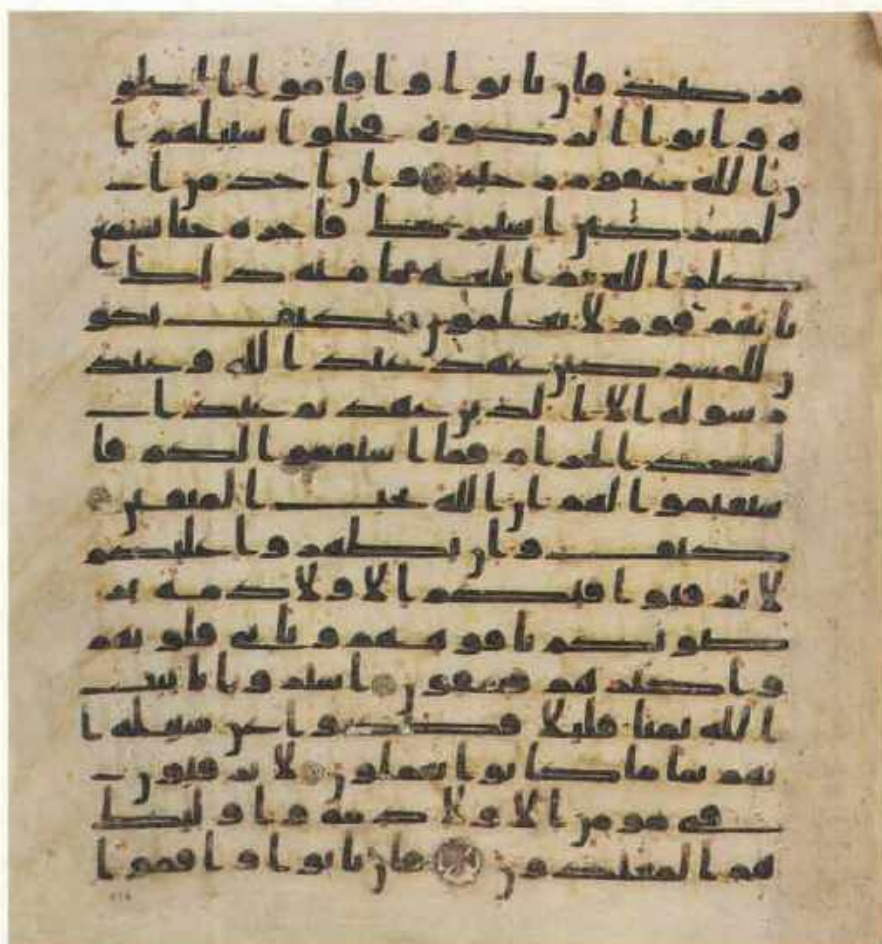 مرصد فان تابوا واقاموا الصلو
ه واتوا الزكوه فخلوا سبيلهم ا
ن الله غفور رحيم وان احد من ا
لمشركين استجارك فاجره حتى يسمع
كلم الله ثم ابلغه مامنه ذلك
بانهم قوم لا يعلمون كيف يكو
ن للمشركين عهد عند الله وعند
رسوله الا الذين عهدتم عند ا
لمسجد الحرام فما استقموا لكم فا
ستقيموا لهم ان الله يحب المتقين
كيف وان يظهروا عليكم
لا يرقبوا فيكم الا ولا ذمه ير
ضونكم بافوههم وتابى قلوبهم
واكثرهم فسقون اشتروا باييت
الله ثمنا قليلا فصدوا عن سبيله ا
نهم سا ما كانوا يعملون لا يرقبون
في مومن الا ولا ذمه واوليك
هم المعتدون فان تابوا واقموا